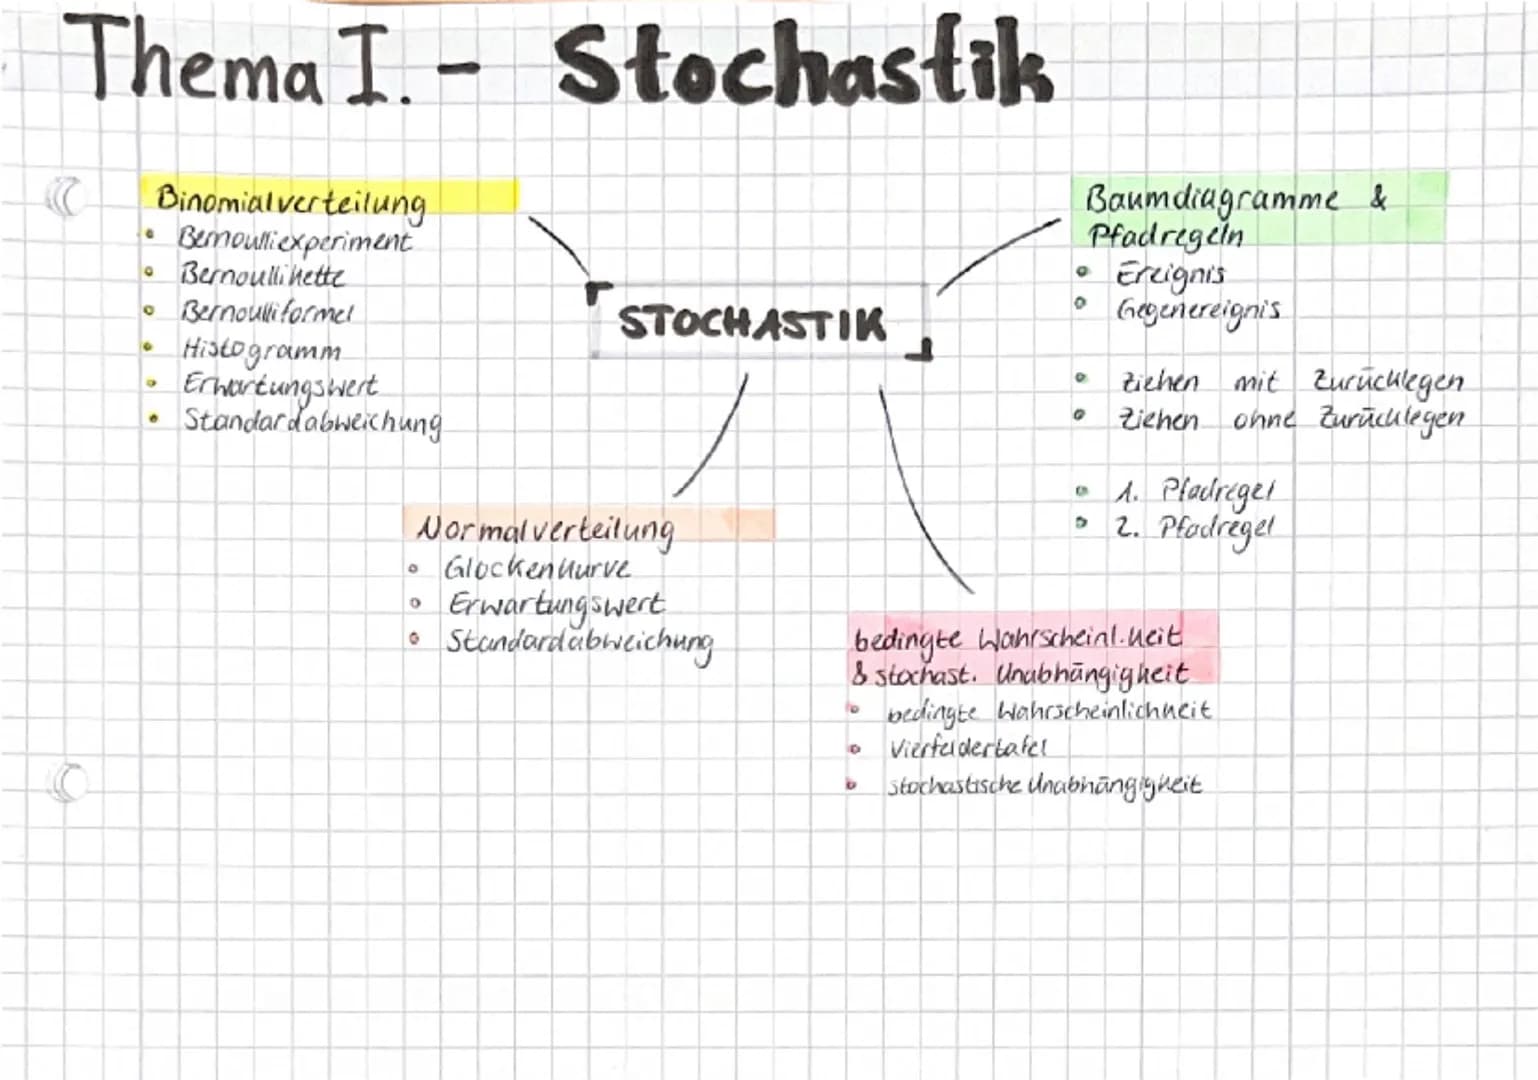 Thema I. - Stochastik
Binomialverteilung
• Bernoulliexperiment
• Bernoullikette
• Bernoulliformel
• Histogramm
• Erwartungswert
• Standardabweichung
STOCHASTIK
Baumdiagramme &
Pfadregeln
• Ereignis
• Gegenereignis
• Ziehen mit Zurücklegen
• Ziehen ohne Zurücklegen
• 1. Pfadregel
• 2. Pfadregel
Normalverteilung
• Glockenkurve
• Erwartungswert
• Standardabweichung
bedingte Wahrscheinl.keit
& stochast. Unabhängigkeit
• bedingte Wahrscheinlichkeit
• Vierfeldertafel
• stochastische Unabhängigkeit